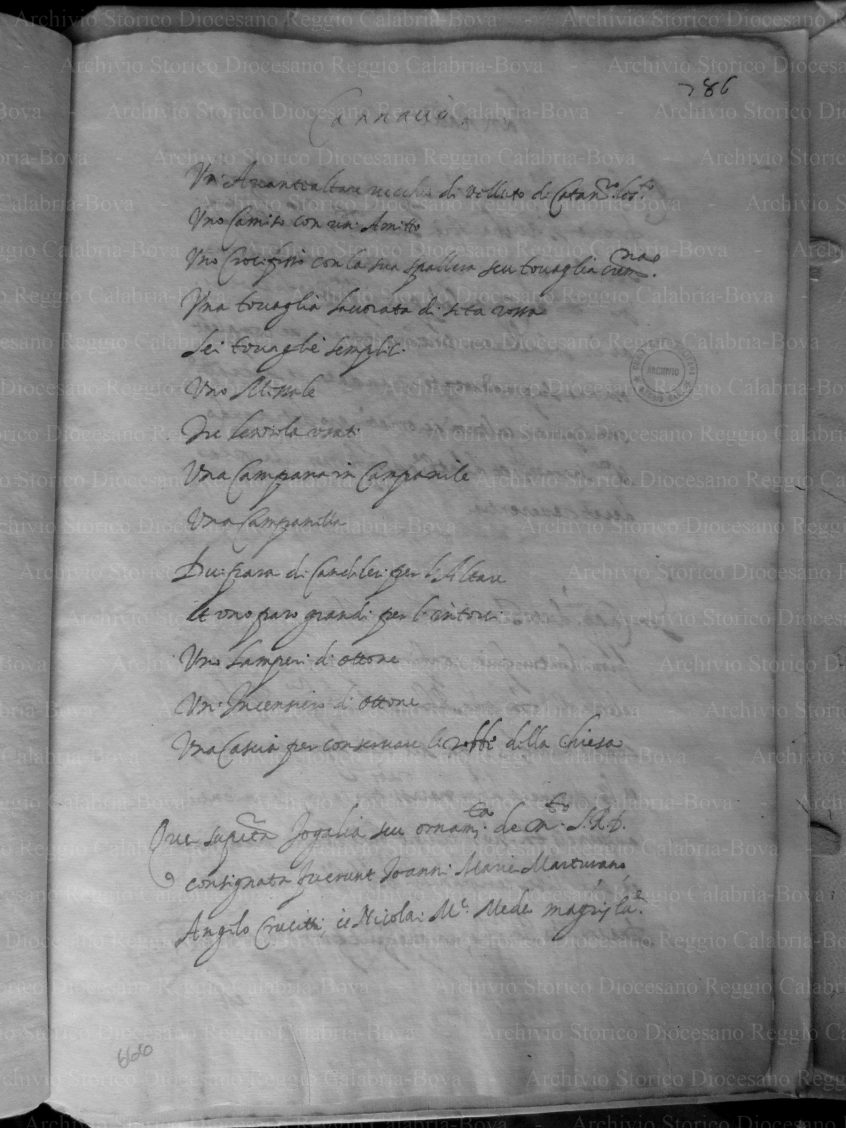 286
Cannavò.
Un' Avantealtare vecchio di velluto di Catan.ro
Uno Camiso con un' Amitto
Uno Crocifisso con la sua spallera seu tovaglia
Una tovaglia lavorata di sita rossa
Sei tovaglie semplici
Uno Missale
Tre usati
Una Campana in Campanile
Una Campanella
Dui para di Candileri per l'Altare
et uno paro grandi per l'intorci
Uno Lamperi di ottone
Un' Incensiero di ottone
Una Cascia per conservare le robbe della Chiesa
Que Jogalia seu ornam.ta de S.R.D.
consignata fuerunt Joanni Marie Marturano,
Angilo Crucitti, et Nicola
666
ARCHIVIO
Archivio Storico Diocesano Reggio Calabria-Bova